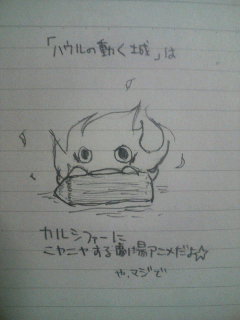 「ハウルの動く城」は
カルシファーに
ニヤニヤする動く場アニメだよ☆
や、マジで